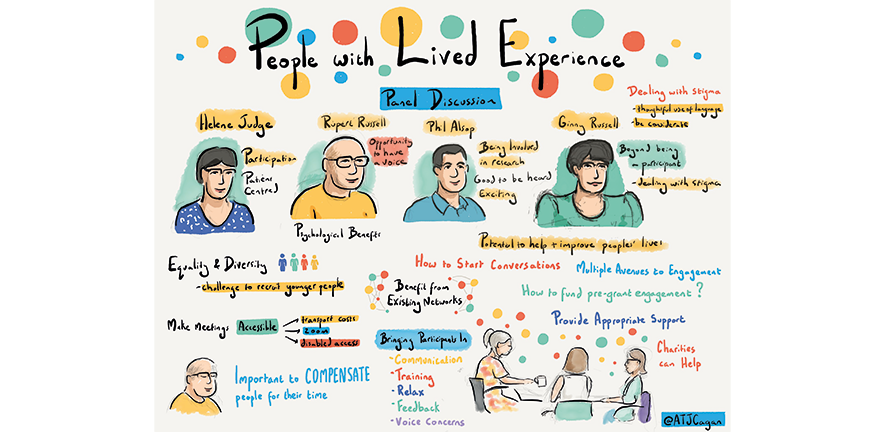 People with Lived Experience
Panel Discussion
Dealing with stigma
- thoughtful use of language
- be considerate
Helene Judge
Participation
Patient
Centred
Rupert Russell
Opportunity
to have
a voice
Psychological Benefits
Phil Alsop
Being Involved
in research
Good to be heard
Exciting
Ginny Russell
Beyond being
a participant
- dealing with stigma
Potential to help + improve peoples' lives
Equality & Diversity
- challenge to recruit younger people
How to Start Conversations
Multiple Avenues to Engagement
Benefit from
Existing Networks
How to fund pre-grant engagement?
Make Meetings Accessible
transport costs
zoom
disabled access
Bringing Participants In
- Communication
- Training
- Relax
- Feedback
- Voice Concerns
Provide Appropriate Support
Charities
can Help
Important to COMPENSATE
people for their time
@ATJCagan